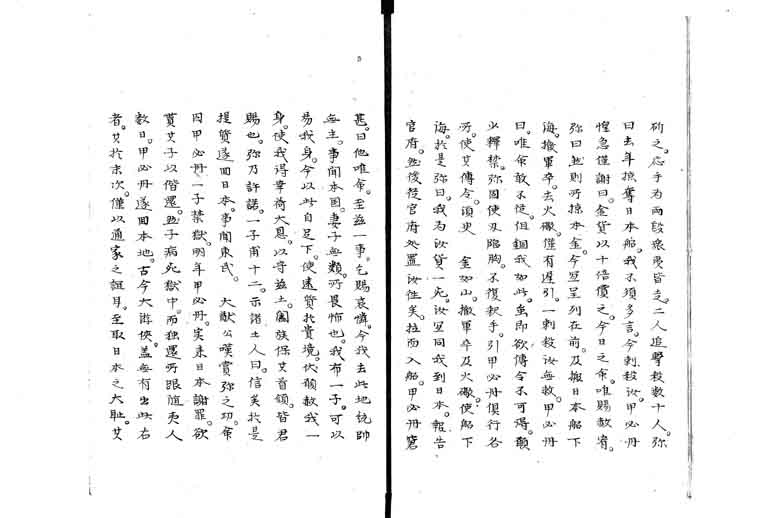 斫之。応手為両段衆夷皆走。二人追撃殺数十人。弥
曰去年掠奪日本船。我不須多言。今刺殺汝。甲必丹
惶急僅謝曰。金貨以十倍償之。今日之命。唯賜救宥。
弥曰然則所掠本金。今宜呈列在前。及搬日本船下
海。撤軍卒。去火礮。僅有遅引。一刺殺汝無赦。甲必丹
曰。唯命敢不従。但錮我如此。雖即欲傳令不可得。願
少釋禁。弥因使刃臨胸。不復釈手。引甲必丹倶行各
所使其傳令。須臾 金如山。撤軍卒及火礮。使船下
海。於是弥曰。我為汝貸一死。汝宜同我到日本。報告
官府。然後従官府処置汝任矣。拉而入船。甲必丹窘
甚。曰他唯命。至茲一事。乞賜哀憐。今我去此地統帥
無主。事聞本国妻子無類。所畏怖也。我有一子。可以
易我身。今以此自足下。使遠質於貴境。伏願赦我一
身。使我得幸荷大恩。以守茲土。闔族保其首領。皆君
賜也。弥乃許諾。一子甫十二。示諸土人曰。信矣於是
提質遂回日本。事聞東武。 大猷公嘆賞弥之功。命
囚甲必丹一子禁獄。明年甲必丹。実来日本謝罪。欲
貰其子以偕還。然子病死獄中。而独還所眼随夷人
数日。甲必丹遂回本地。古今大游侠。蓋無有出此右
者。其於末次。僅以通家之誼耳。至取日本之大恥。其